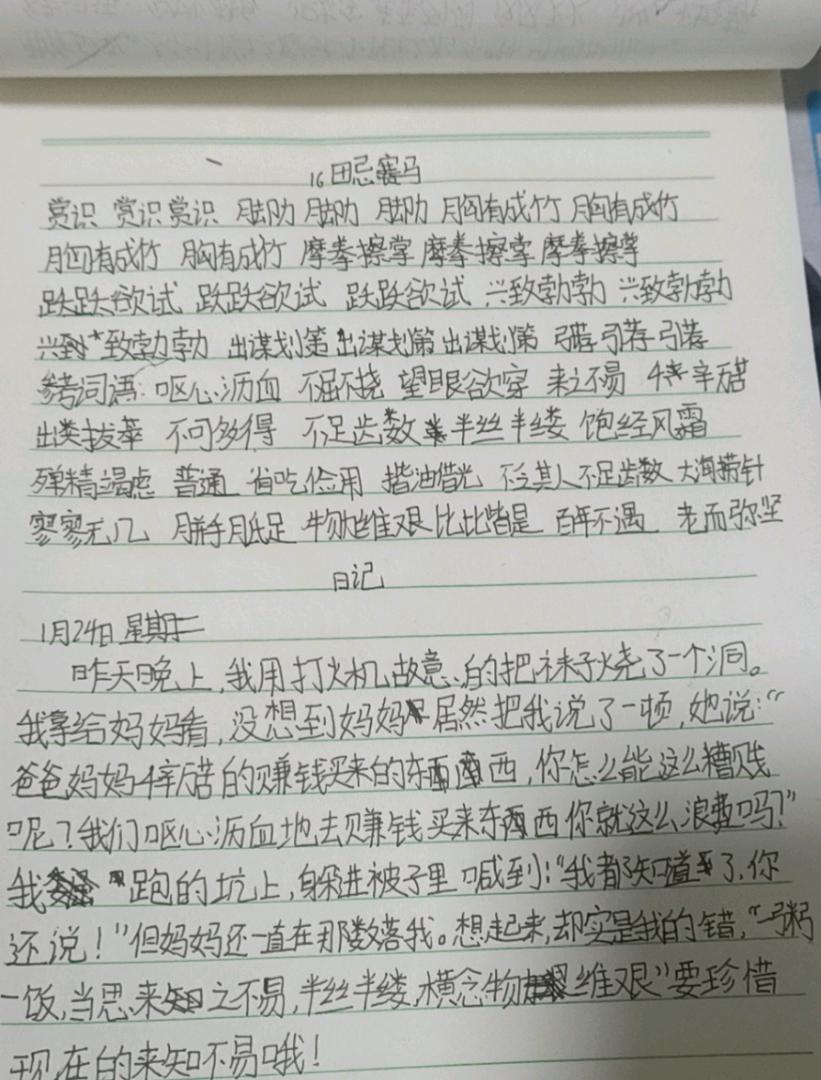 16 田忌赛马
赏识 赏识 赏识 助 助 助 胸有成竹 胸有成竹
胸有成竹 胸有成竹 摩拳擦掌 摩拳擦掌 摩拳擦掌
跃跃欲试 跃跃欲试 跃跃欲试 兴致勃勃 兴致勃勃
兴致勃勃 出谋划策 出谋划策 出谋划策 引荐 引荐 引荐
参考词语: 呕心沥血 不屈不挠 望眼欲穿 来之不易 辛苦
出类拔萃 不可多得 不足齿数 半丝半缕 饱经风霜
殚精竭虑 普通 省吃俭用 揩油借光 不乏其人 不足齿数 大海捞针
寥寥无几 胼手胝足 物力维艰 比比皆是 百年不遇 老而弥坚
日记
1月24日 星期二
昨天晚上,我用打火机故意的把袜子烧了一个洞。
我拿给妈妈看,没想到妈妈居然把我说了一顿,她说:“
爸爸妈妈辛苦的赚钱买来的东西,你怎么能这么糟贱
呢?我们呕心沥血地去赚钱买来东西你就这么浪费吗?”
我跑的坑上,躲进被子里喊到:“我都知道了,你
还说!”但妈妈还一直在那数落我。想起来,却实是我的错,“一粥
一饭,当思来之不易,半丝半缕,横念物维艰”要珍惜
现在的来知不易哦!